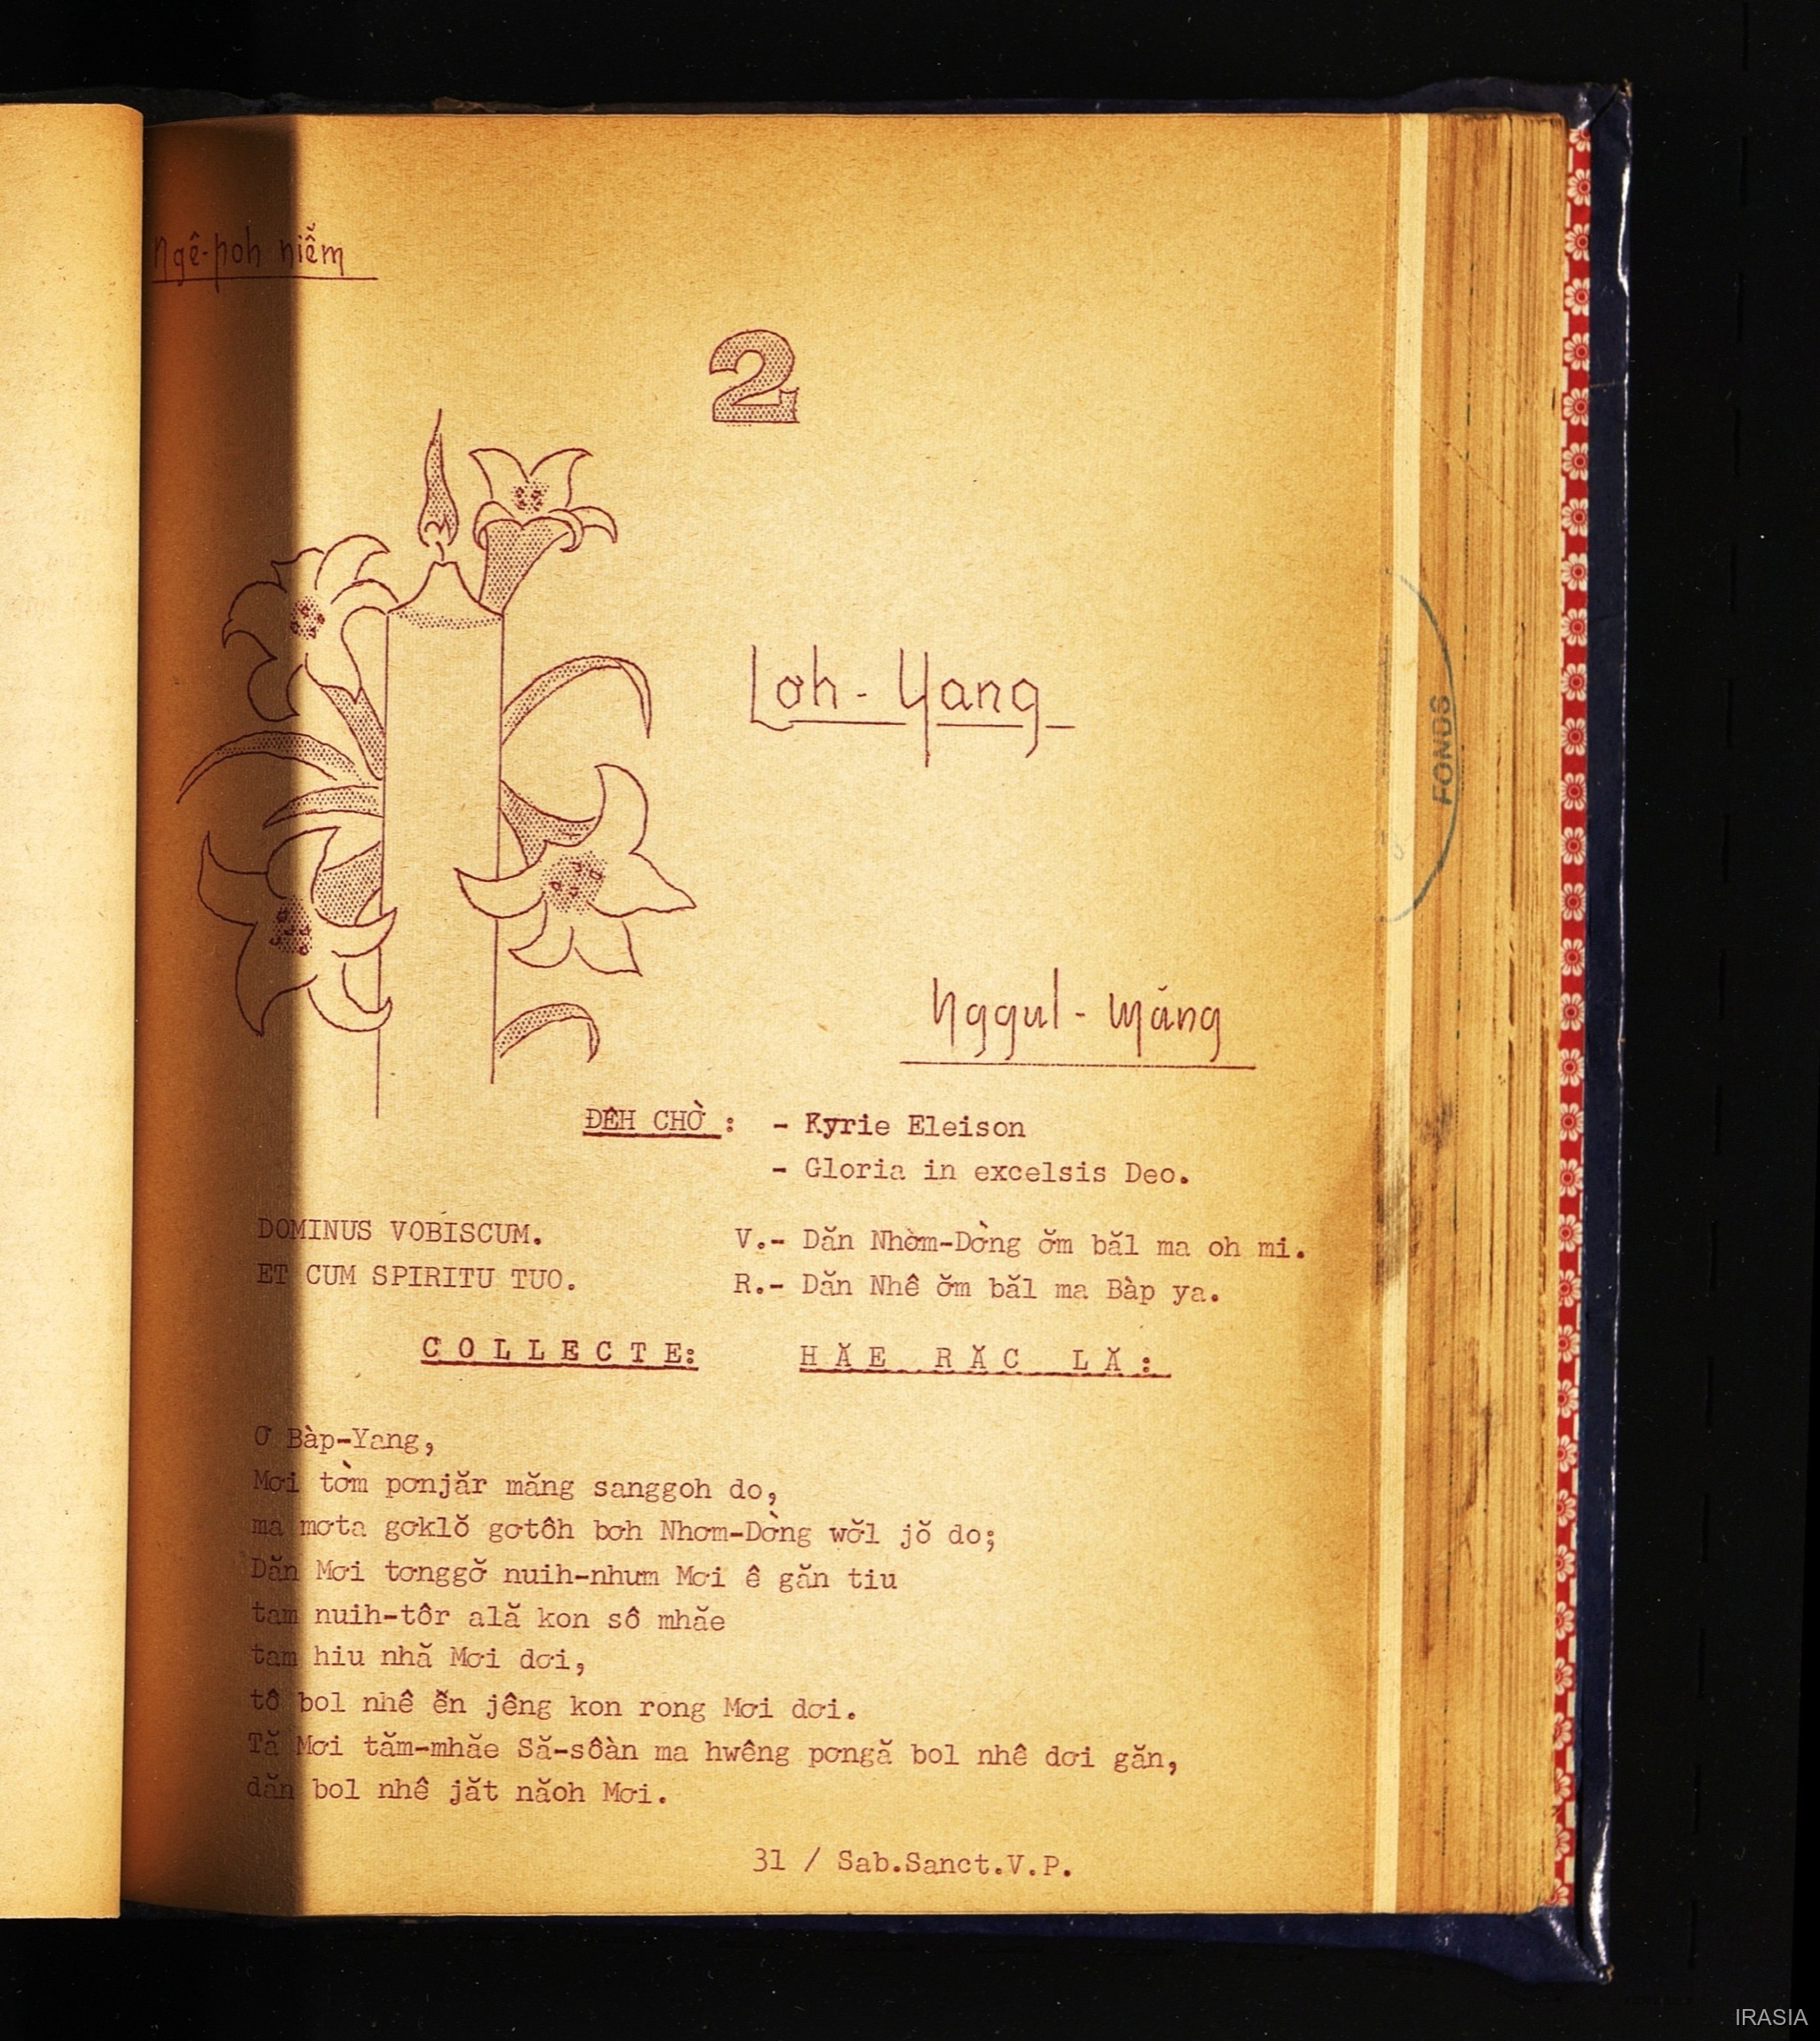 Ngê-poh niễm
2
Lơh-Yang
Nggul-Măng
ĐÊH CHỜ : - Kyrie Eleison
- Gloria in excelsis Deo.
DOMINUS VOBISCUM. V.- Dăn Nhờm-Dờng ơ̆m băl ma oh mi.
ET CUM SPIRITU TUO. R.- Dăn Nhê ơ̆m băl ma Bàp ya.
COLLECTE: HĂE RĂC LĂ:
Ơ Bàp-Yang,
Mơi tờm pơnjăr măng sanggoh do,
ma mơta gơklŏ gơtôh bơh Nhơm-Dờng wơ̆l jŏ do;
Dăn Mơi tơnggơ̆ nuih-nhum Mơi ê găn tiu
tam nuih-tôr ală kon sô mhăe
tam hiu nhă Mơi dơi,
tô bol nhê ễn jêng kon rong Mơi dơi.
Tă Mơi tăm-mhăe Să-sôàn ma hwêng pơngă bol nhê dơi găn,
dăn bol nhê jăt năoh Mơi.
31 / Sab.Sanct.V.P.
FONDS
IRASIA